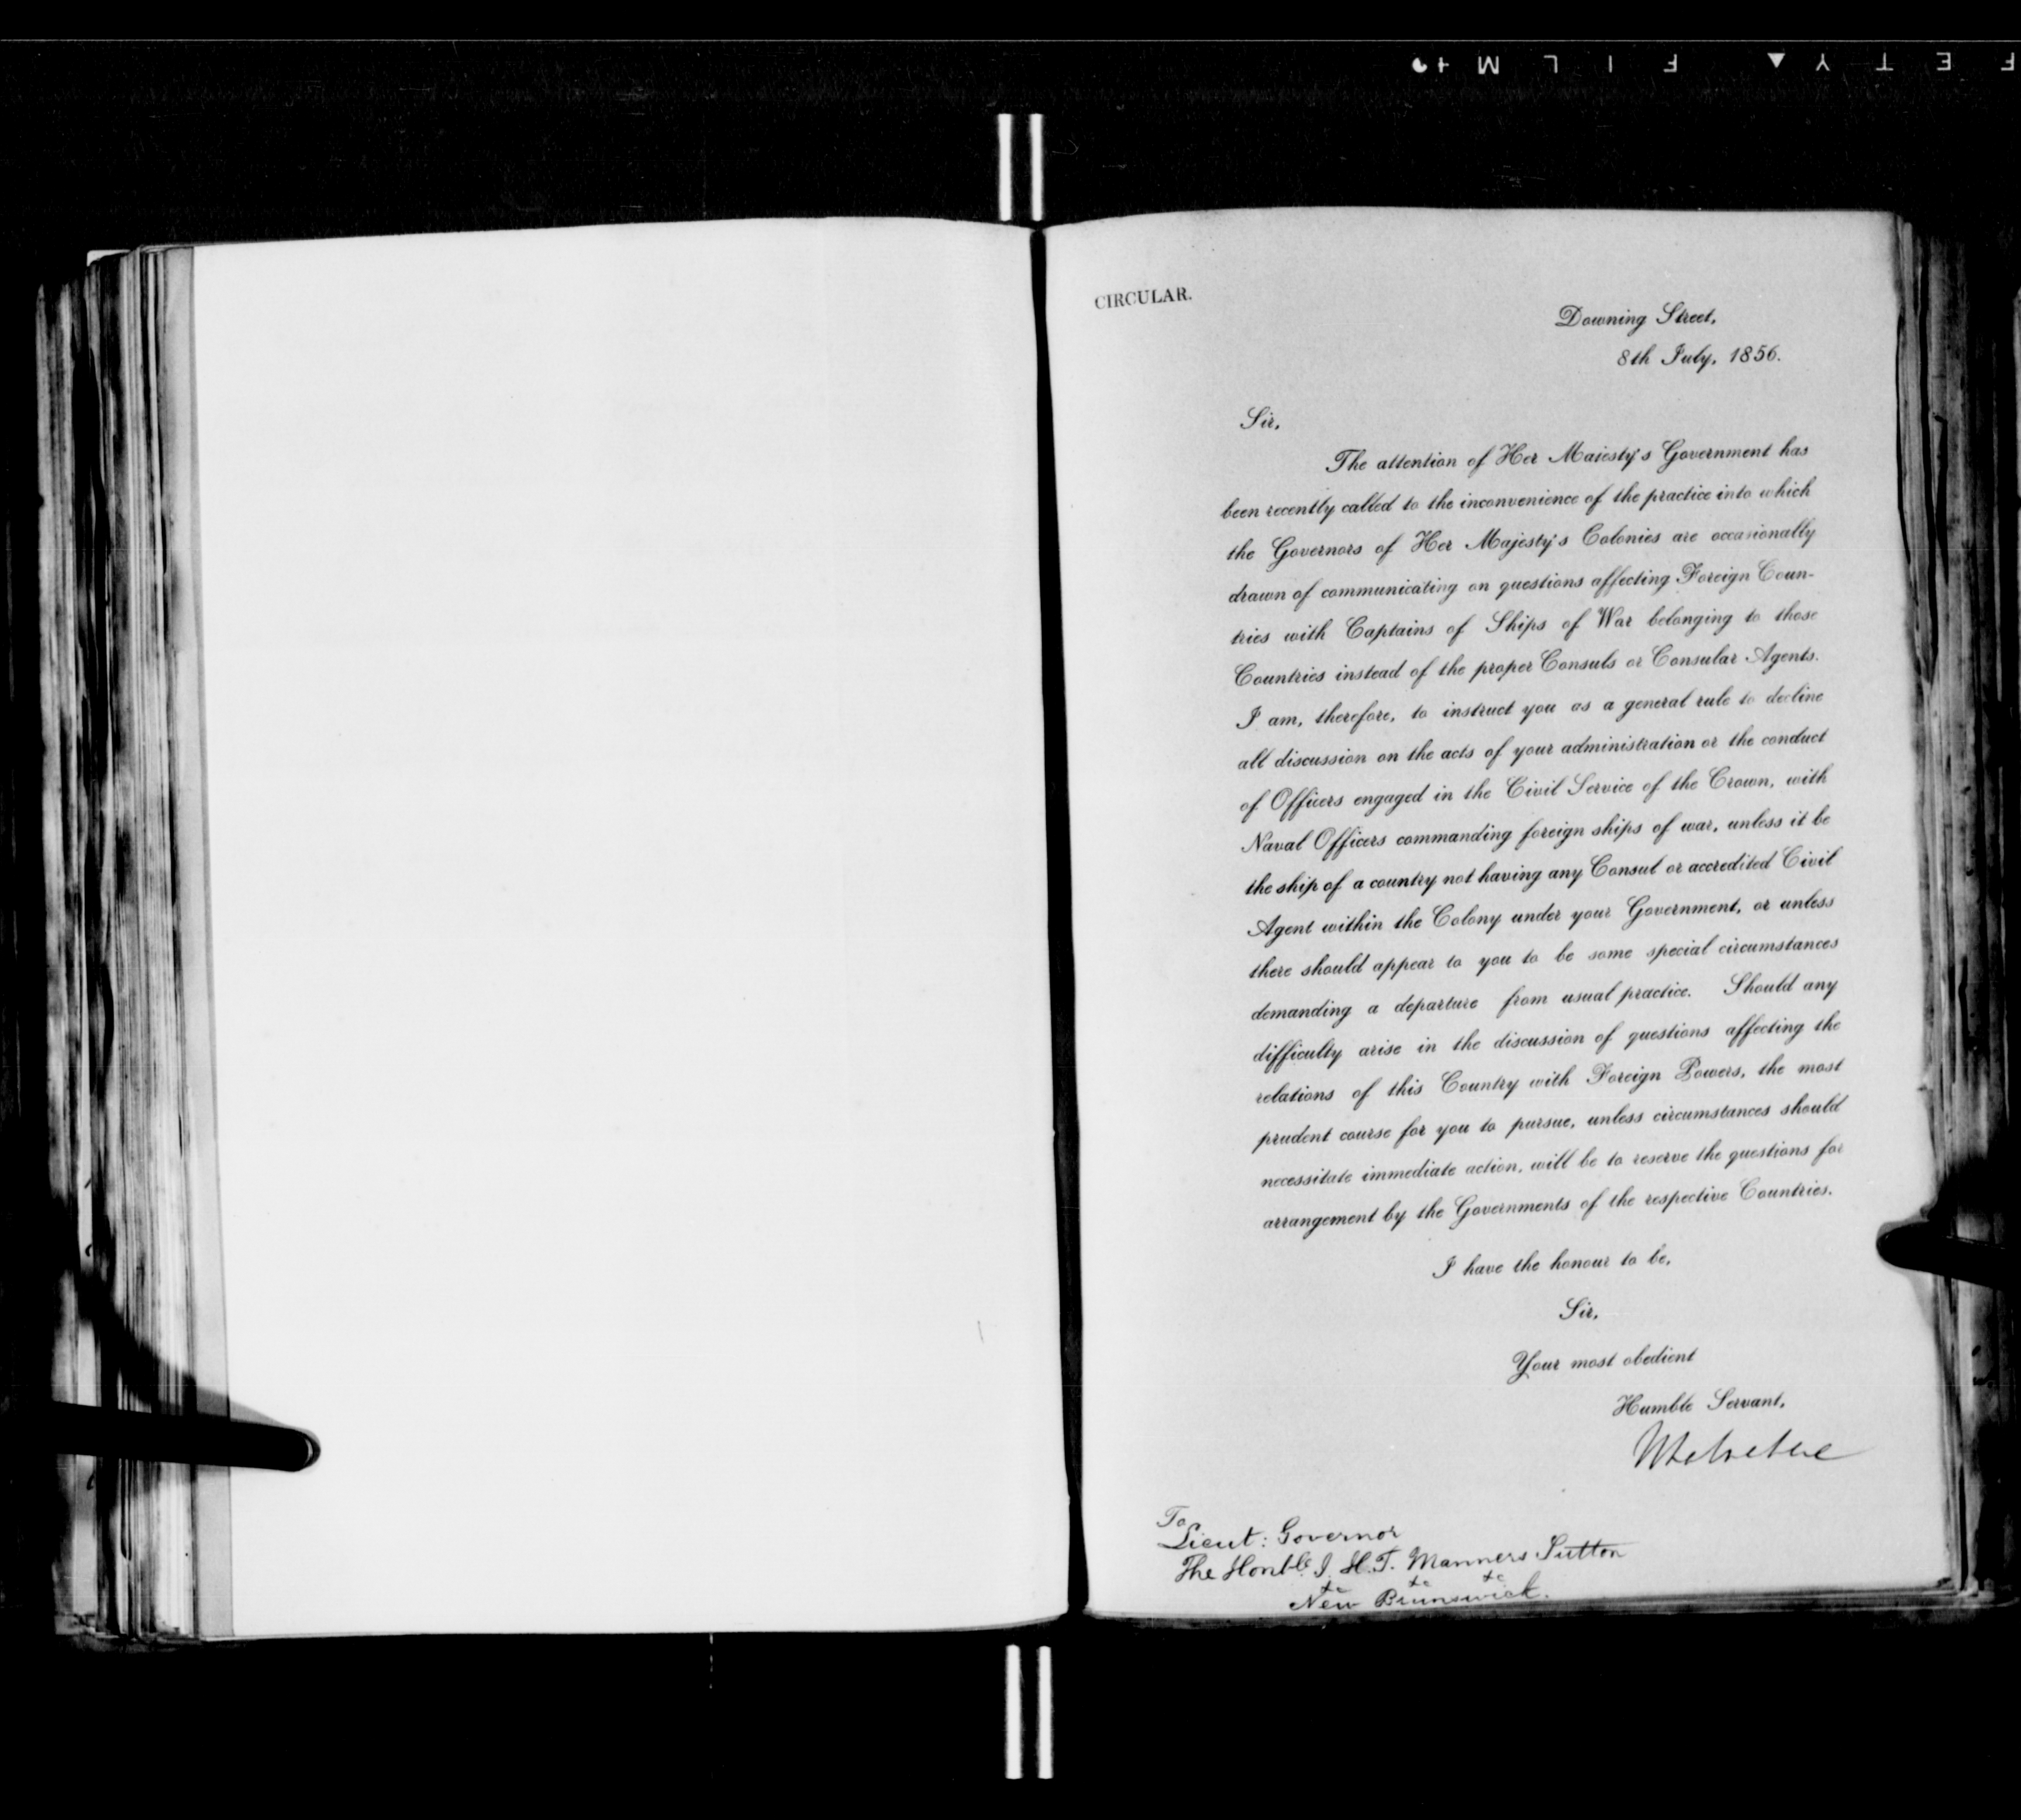 SAFETY▲ FILM+
CIRCULAR.
Downing Street,
8th July, 1856.
Sir,
The attention of Her Majesty's Government has
been recently called to the inconvenience of the practice into which
the Governors of Her Majesty's Colonies are occasionally
drawn of communicating on questions affecting Foreign Coun-
tries with Captains of Ships of War belonging to those
Countries instead of the proper Consuls or Consular Agents.
I am, therefore, to instruct you as a general rule to decline
all discussion on the acts of your administration or the conduct
of Officers engaged in the Civil Service of the Crown, with
Naval Officers commanding foreign ships of war, unless it be
the ship of a country not having any Consul or accredited Civil
Agent within the Colony under your Government, or unless
there should appear to you to be some special circumstances
demanding a departure from usual practice. Should any
difficulty arise in the discussion of questions affecting the
relations of this Country with Foreign Powers, the most
prudent course for you to pursue, unless circumstances should
necessitate immediate action, will be to reserve the questions for
arrangement by the Governments of the respective Countries.
I have the honour to be,
Sir,
Your most obedient
Humble Servant,
To
Lieut: Governor
The Honble. J. H. T. Manners Sutton
&c &c &c
New Brunswick.